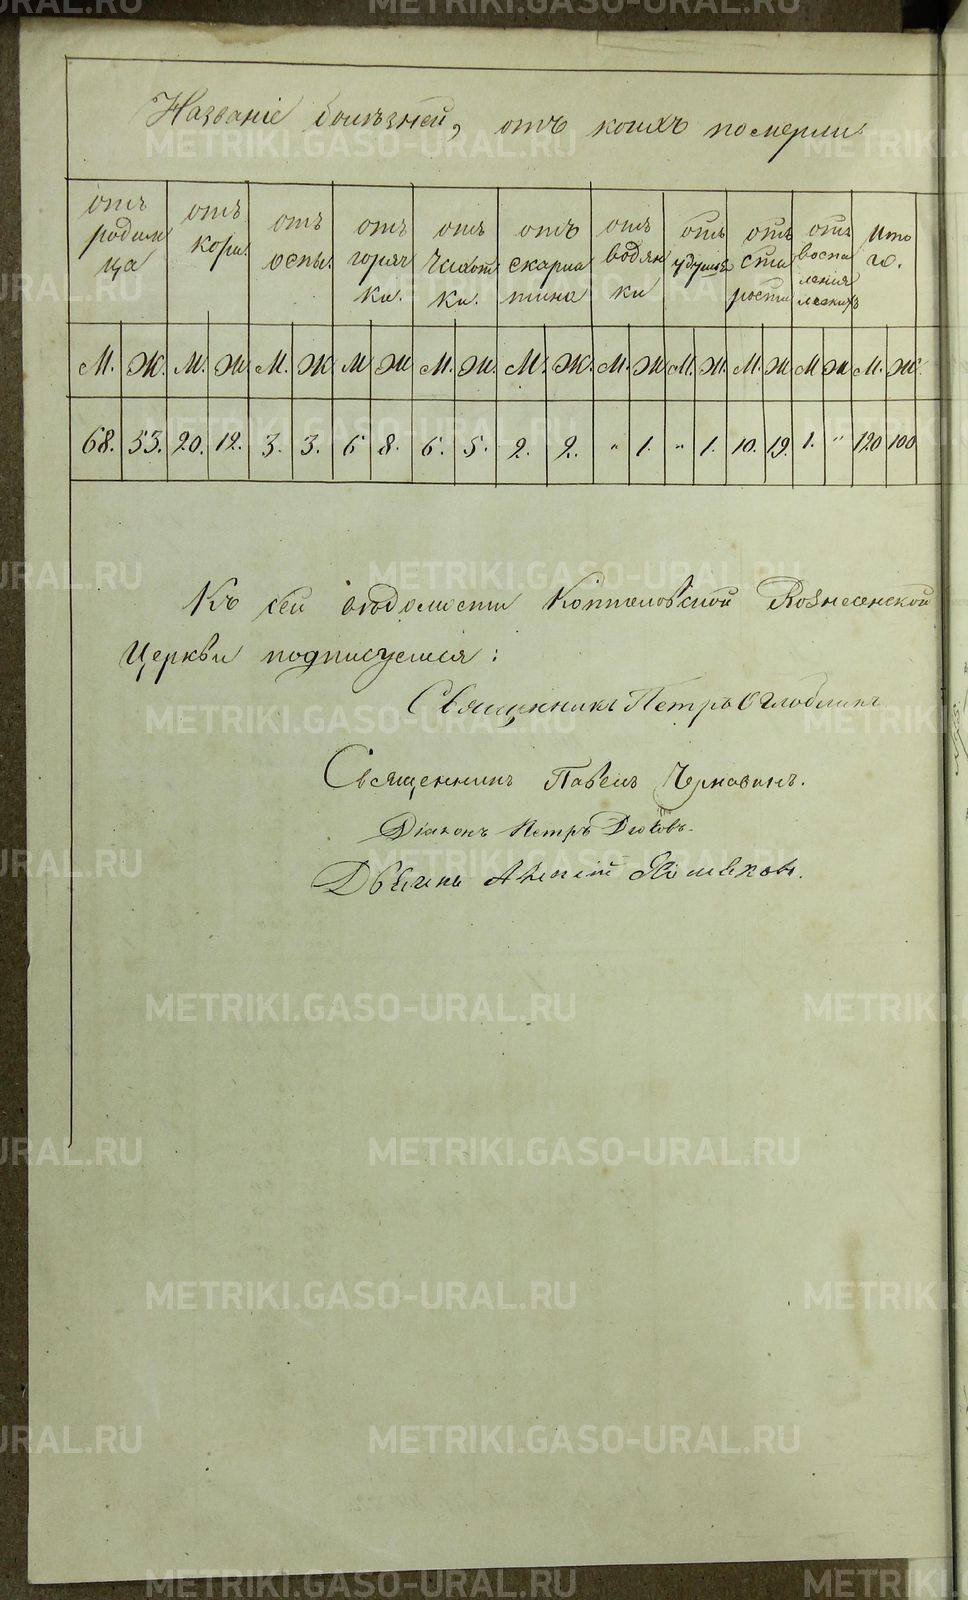 Названіе болѣзней, отъ коихъ померли:
отъ родимца
отъ кори.
отъ оспы.
отъ горячки.
отъ чахотки.
отъ скарлатина
отъ водянки
отъ удушья
отъ старости
отъ воспаленія легкихъ
Итого.
М. Ж. М. Ж. М. Ж. М Ж М. Ж. М. Ж. М. Ж М. Ж. М. Ж М Ж М. Ж.
68. 53. 20. 12. 3. 3. 6 8. 6. 5. 2. 2. " 1. " 1. 10. 19. 1. " 120 100
Къ сей вѣдомости Коптеловской Вознесенской
Церкви подписуемся:
Священникъ Петръ Оглоблинъ
Священникъ Павелъ Черновинъ.
Діаконъ Петръ
Алексій
METRIKI.GASO-URAL.RU